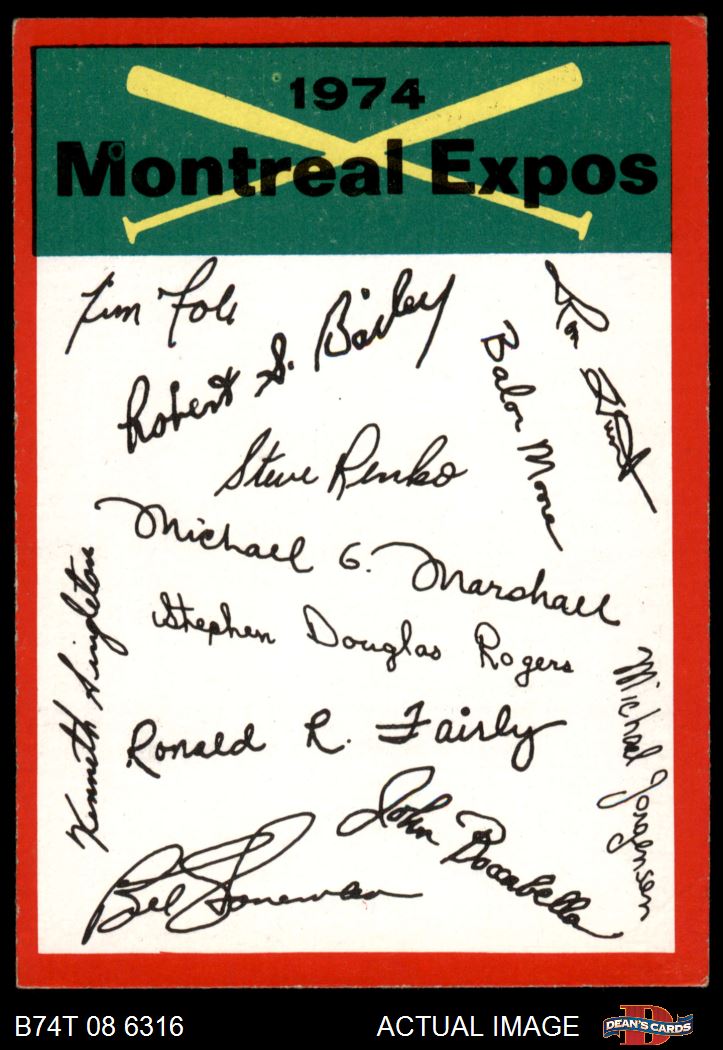 1974
Montreal Expos
Tim Foli
Robert S. Bailey
Ron Hunt
Balor Moore
Steve Renko
Michael G. Marshall
Kenneth Singleton
Stephen Douglas Rogers
Michael Jorgensen
Ronald R. Fairly
John Boccabella
Bill Stoneman
B74T 08 6316
ACTUAL IMAGE
D
DEAN'S CARDS